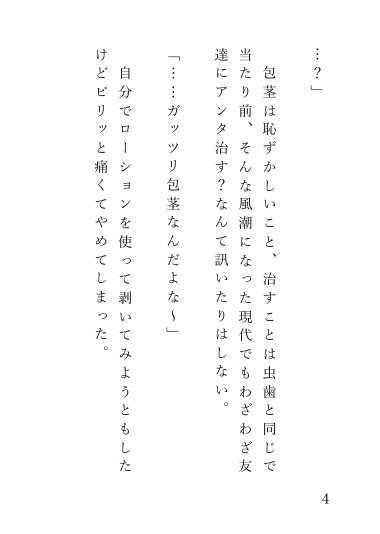 …？」
包茎は恥ずかしいこと、治すことは虫歯と同じで
当たり前、そんな風潮になった現代でもわざわざ友
達にアンタ治す？なんて訊いたりはしない。
「……ガッツリ包茎なんだよな～」
自分でローションを使って剥いてみようともした
けどピリッと痛くてやめてしまった。
4